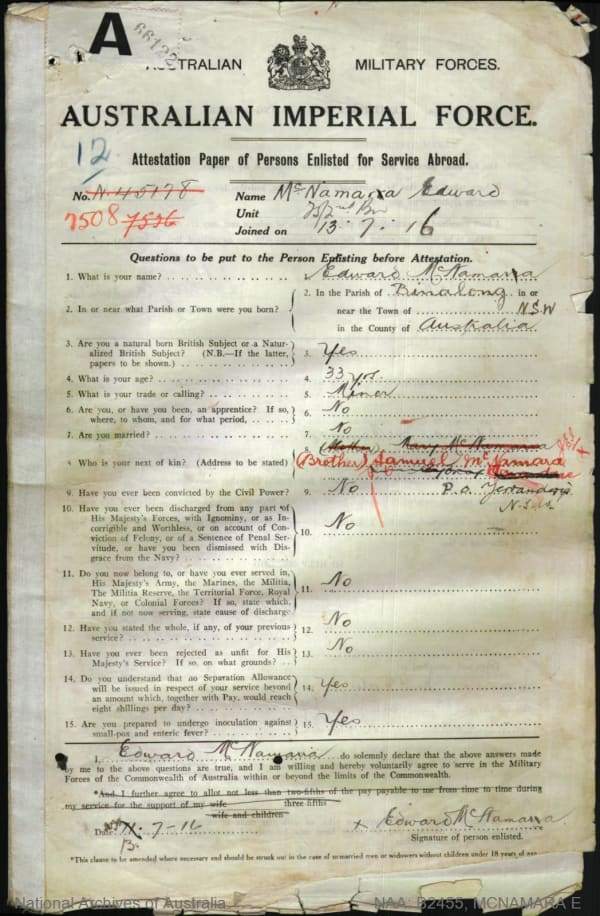 A
66122
AUSTRALIAN MILITARY FORCES.
AUSTRALIAN IMPERIAL FORCE.
12
Attestation Paper of Persons Enlisted for Service Abroad.
No. N 45178 Name McNamara Edward
7508 7536 Unit
Joined on 13. 7. 16
Questions to be put to the Person Enlisting before Attestation.
1. What is your name? 1. Edward McNamara
2. In or near what Parish or Town were you born? 2. In the Parish of Binalong in or
near the Town of N.S.W
in the County of Australia
3. Are you a natural born British Subject or a Natur-
alized British Subject? (N.B.—If the latter,
papers to be shown.) 3. Yes
4. What is your age? 4. 33 yrs.
5. What is your trade or calling? 5. Miner
6. Are you, or have you been, an apprentice? If so,
where, to whom, and for what period, 6. No
7. Are you married? 7. No
8 (Mother) Mary McNamara
8 Who is your next of kin? (Address to be stated) (Brother) Samuel McNamara
9. Have you ever been convicted by the Civil Power? 9. No P.O.
N.S.W.
10. Have you ever been discharged from any part of
His Majesty's Forces, with Ignominy, or as In-
corrigible and Worthless, or on account of Con-
viction of Felony, or of a Sentence of Penal Ser-
vitude, or have you been dismissed with Dis-
grace from the Navy? 10. No
11. Do you now belong to, or have you ever served in,
His Majesty's Army, the Marines, the Militia,
The Militia Reserve, the Territorial Force, Royal
Navy, or Colonial Forces? If so, state which,
and if not now serving, state cause of discharge 11. No
12. Have you stated the whole, if any, of your previous
service? 12. No
13. Have you ever been rejected as unfit for His
Majesty's Service? If so, on what grounds? 13. No
14. Do you understand that no Separation Allowance
will be issued in respect of your service beyond
an amount which, together with Pay, would reach
eight shillings per day? 14. Yes
15. Are you prepared to undergo inoculation against
small-pox and enteric fever? 15. Yes
I, Edward McNamara do solemnly declare that the above answers made
by me to the above questions are true, and I am willing and hereby voluntarily agree to serve in the Military
Forces of the Commonwealth of Australia within or beyond the limits of the Commonwealth.
*And I further agree to allot not less than two-fifths of the pay payable to me from time to time during
my service for the support of my wife three fifths
wife and children
Date 11-7-16 x Edward McNamara
13. Signature of person enlisted.
*This clause to be amended where necessary and should be struck out in the case of unmarried men or widowers without children under 18 years of age
National Archives of Australia NAA: B2455, MCNAMARA E